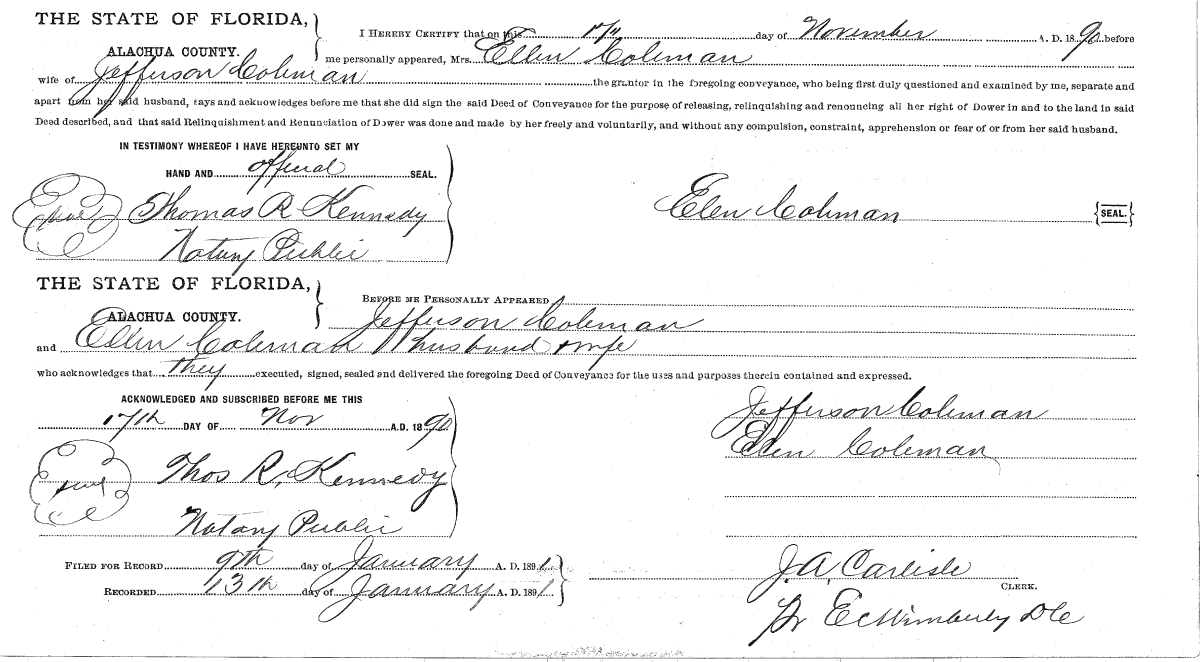 THE STATE OF FLORIDA,
ALACHUA COUNTY.
I HEREBY CERTIFY that on this 17th day of November A. D. 1890 before
me personally appeared, Mrs. Ellen Coleman
wife of Jefferson Coleman the grantor in the foregoing conveyance, who being first duly questioned and examined by me, separate and
apart from her said husband, says and acknowledges before me that she did sign the said Deed of Conveyance for the purpose of releasing, relinquishing and renouncing all her right of Dower in and to the land in said
Deed described, and that said Relinquishment and Renunciation of Dower was done and made by her freely and voluntarily, and without any compulsion, constraint, apprehension or fear of or from her said husband.
IN TESTIMONY WHEREOF I HAVE HEREUNTO SET MY
HAND AND official SEAL.
Seal Thomas R Kennedy
Notary Public
Elen Coleman {SEAL.}
THE STATE OF FLORIDA,
ALACHUA COUNTY.
BEFORE ME PERSONALLY APPEARED
Jefferson Coleman
and Ellen Coleman husband & wife
who acknowledges that they executed, signed, sealed and delivered the foregoing Deed of Conveyance for the uses and purposes therein contained and expressed.
ACKNOWLEDGED AND SUBSCRIBED BEFORE ME THIS
17th DAY OF Nov A.D. 1890
Seal Thos R, Kennedy
Notary Public
Jefferson Coleman
Elen Coleman
FILED FOR RECORD 9th day of January A. D. 1891
RECORDED 13th day of January A. D. 1891
J. A. Carlisle
CLERK.
Pr E C Wimberly D C